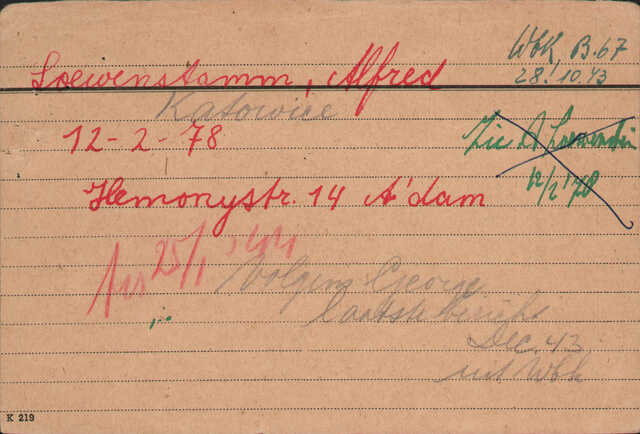 Wbk, B.67
28/10.43
Loewenstamm, Alfred
Katowice
12-2-78
Zie A Loewenstein
12/2'78
Hemonystr. 14 A'dam
25/1 '44
Volgens George
laatste bericht
Dec. 43
uit Wbk
K 219